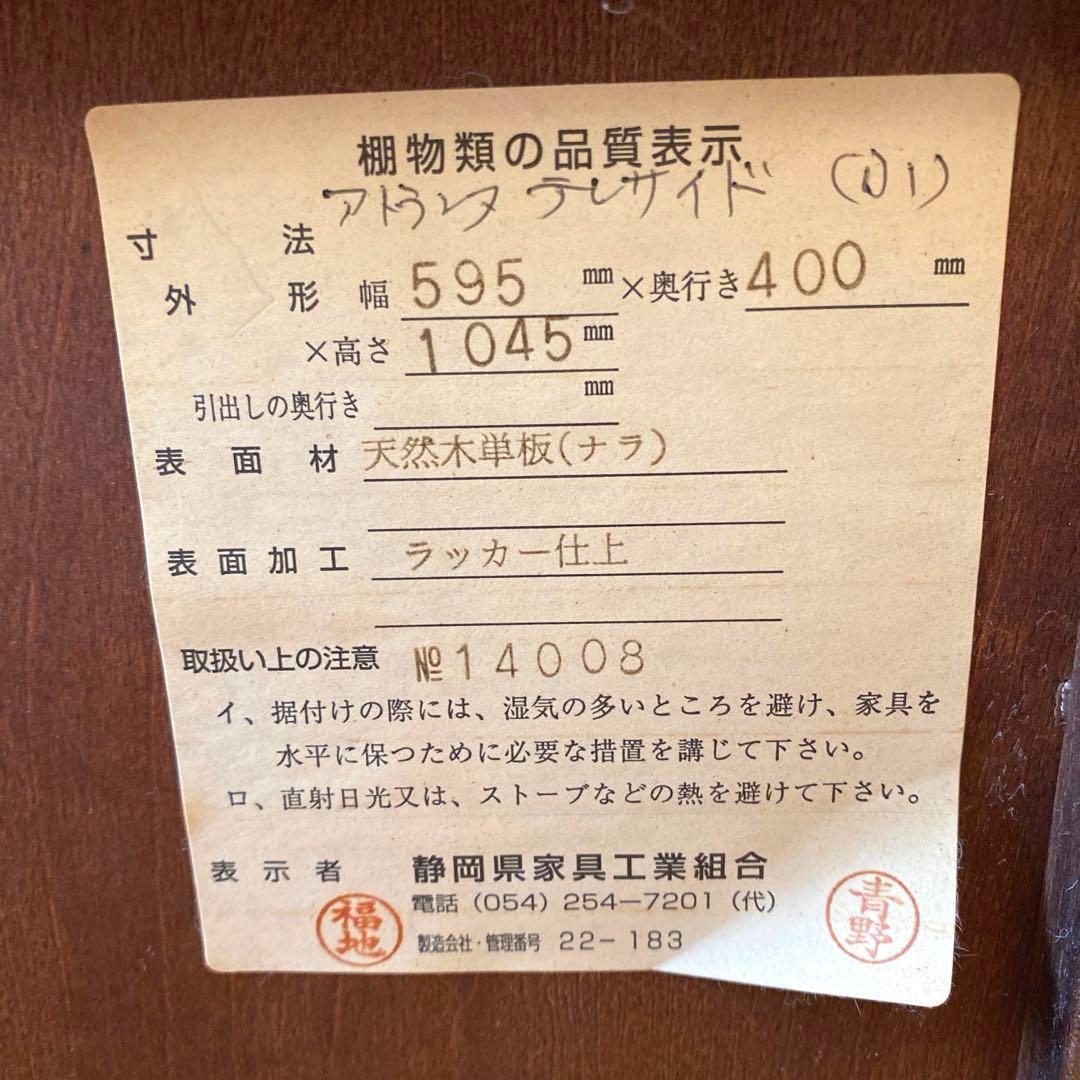 棚物類の品質表示
アトランタ テレサイド (D1)
寸法
外形 幅 595 mm ×奥行き 400 mm
×高さ 1045 mm
引出しの奥行き mm
表面材 天然木単板(ナラ)
表面加工 ラッカー仕上
取扱い上の注意 №14008
イ、据付けの際には、湿気の多いところを避け、家具を
水平に保つために必要な措置を講じて下さい。
ロ、直射日光又は、ストーブなどの熱を避けて下さい。
表示者 静岡県家具工業組合
電話 (054) 254-7201 (代)
製造会社・管理番号 22-183
福地
青野